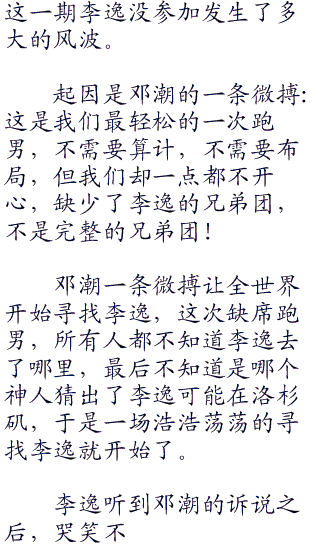 这一期李逸没参加发生了多
大的风波。
起因是邓潮的一条微搏:
这是我们最轻松的一次跑
男，不需要算计，不需要布
局，但我们却一点都不开
心，缺少了李逸的兄弟团，
不是完整的兄弟团！
邓潮一条微搏让全世界
开始寻找李逸，这次缺席跑
男，所有人都不知道李逸去
了哪里，最后不知道是哪个
神人猜出了李逸可能在洛杉
矶，于是一场浩浩荡荡的寻
找李逸就开始了。
李逸听到邓潮的诉说之
后，哭笑不